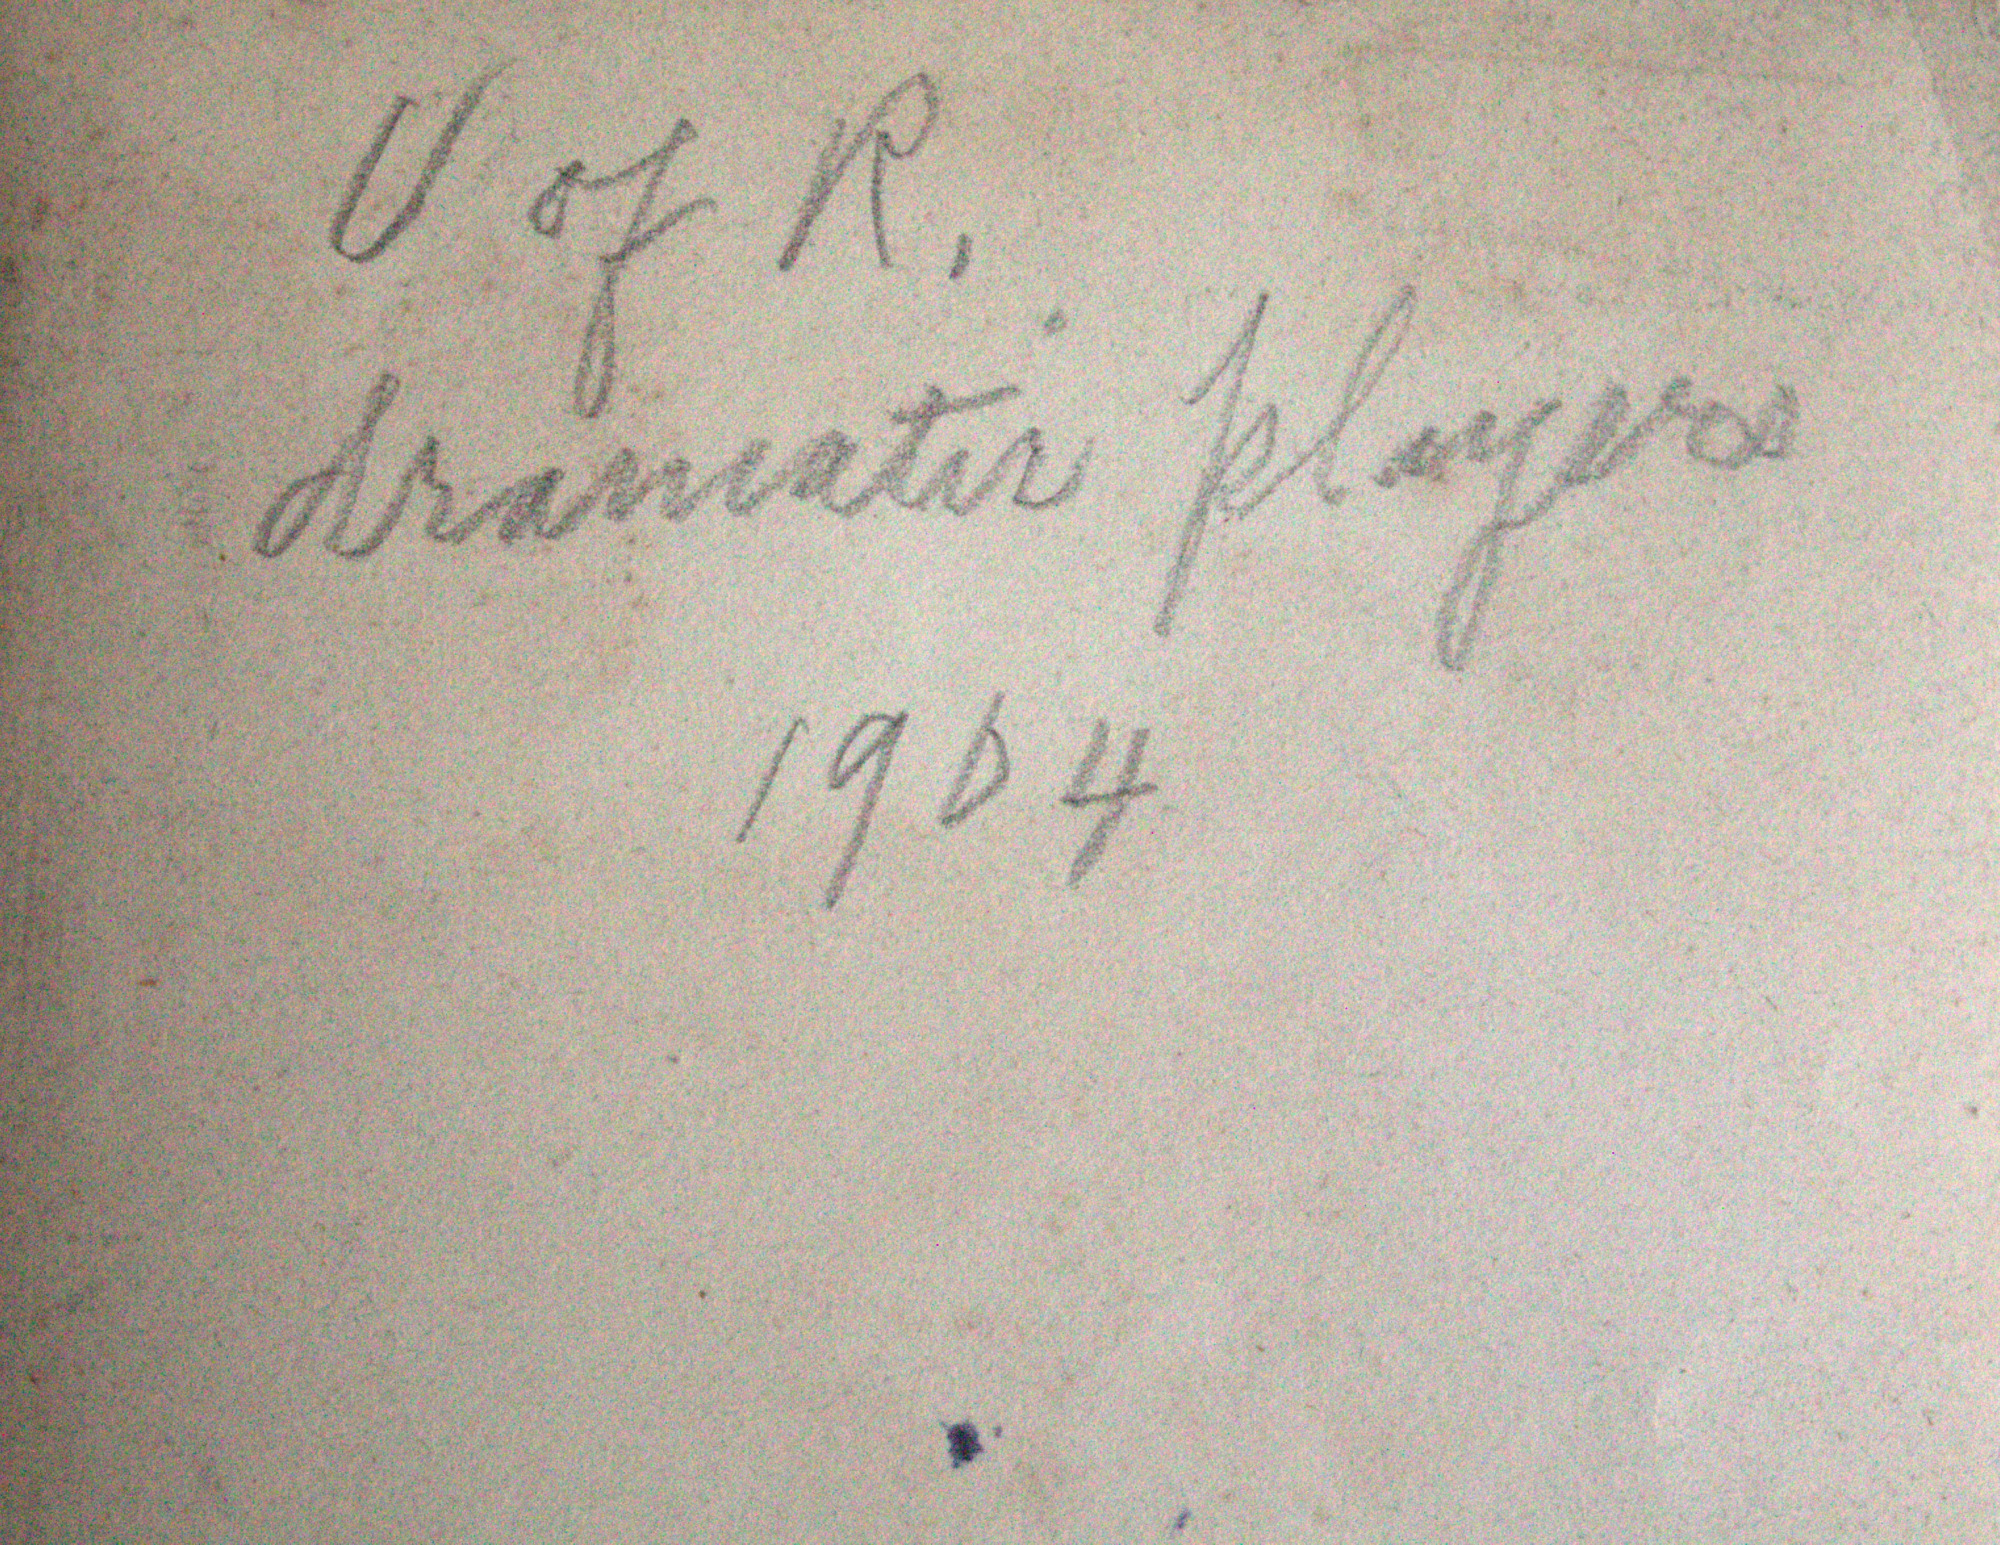 U of R.
dramatic players
1904